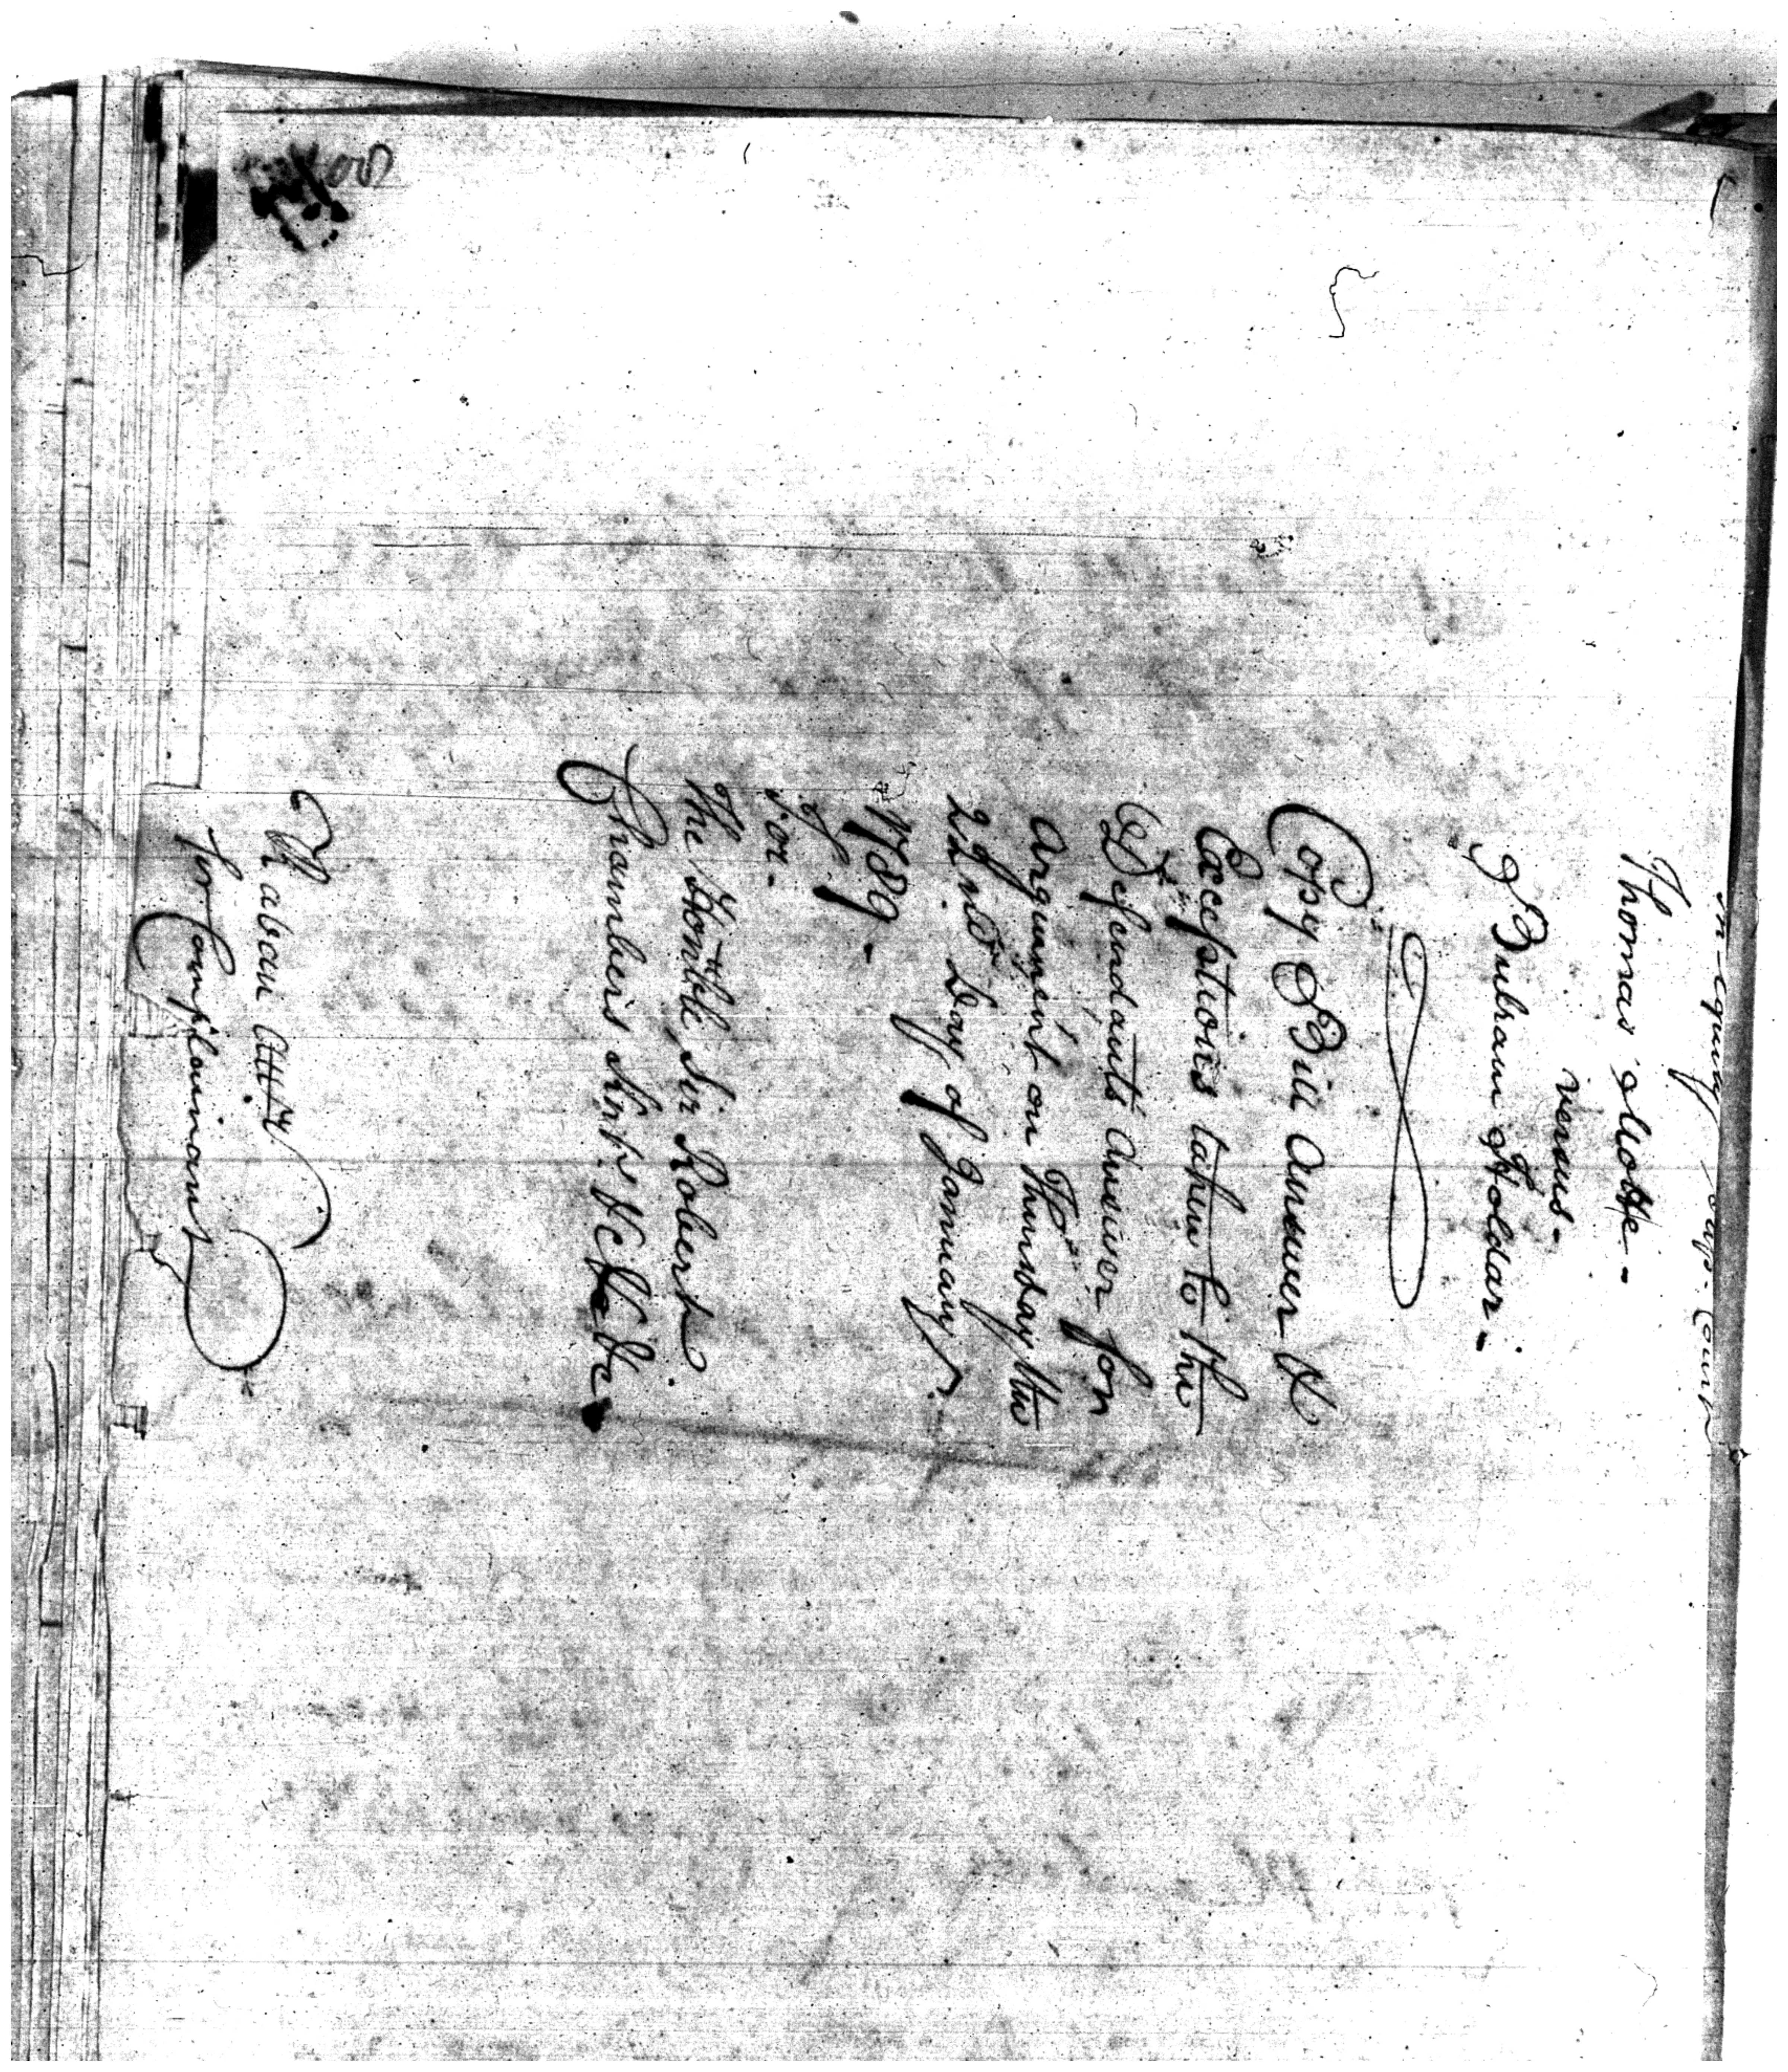 In Equity Supe. Court
Thomas Motte -
versus -
Buhraun Holdar -
Copy Bill Answer &
Exceptions taken to the
Defendants Answer for
Argument on Thursday the
22nd Day of January
1789 -
For -
The Honble Sir Robert
Chambers Knt. &c &c &c
Raban Atty
for Complainant